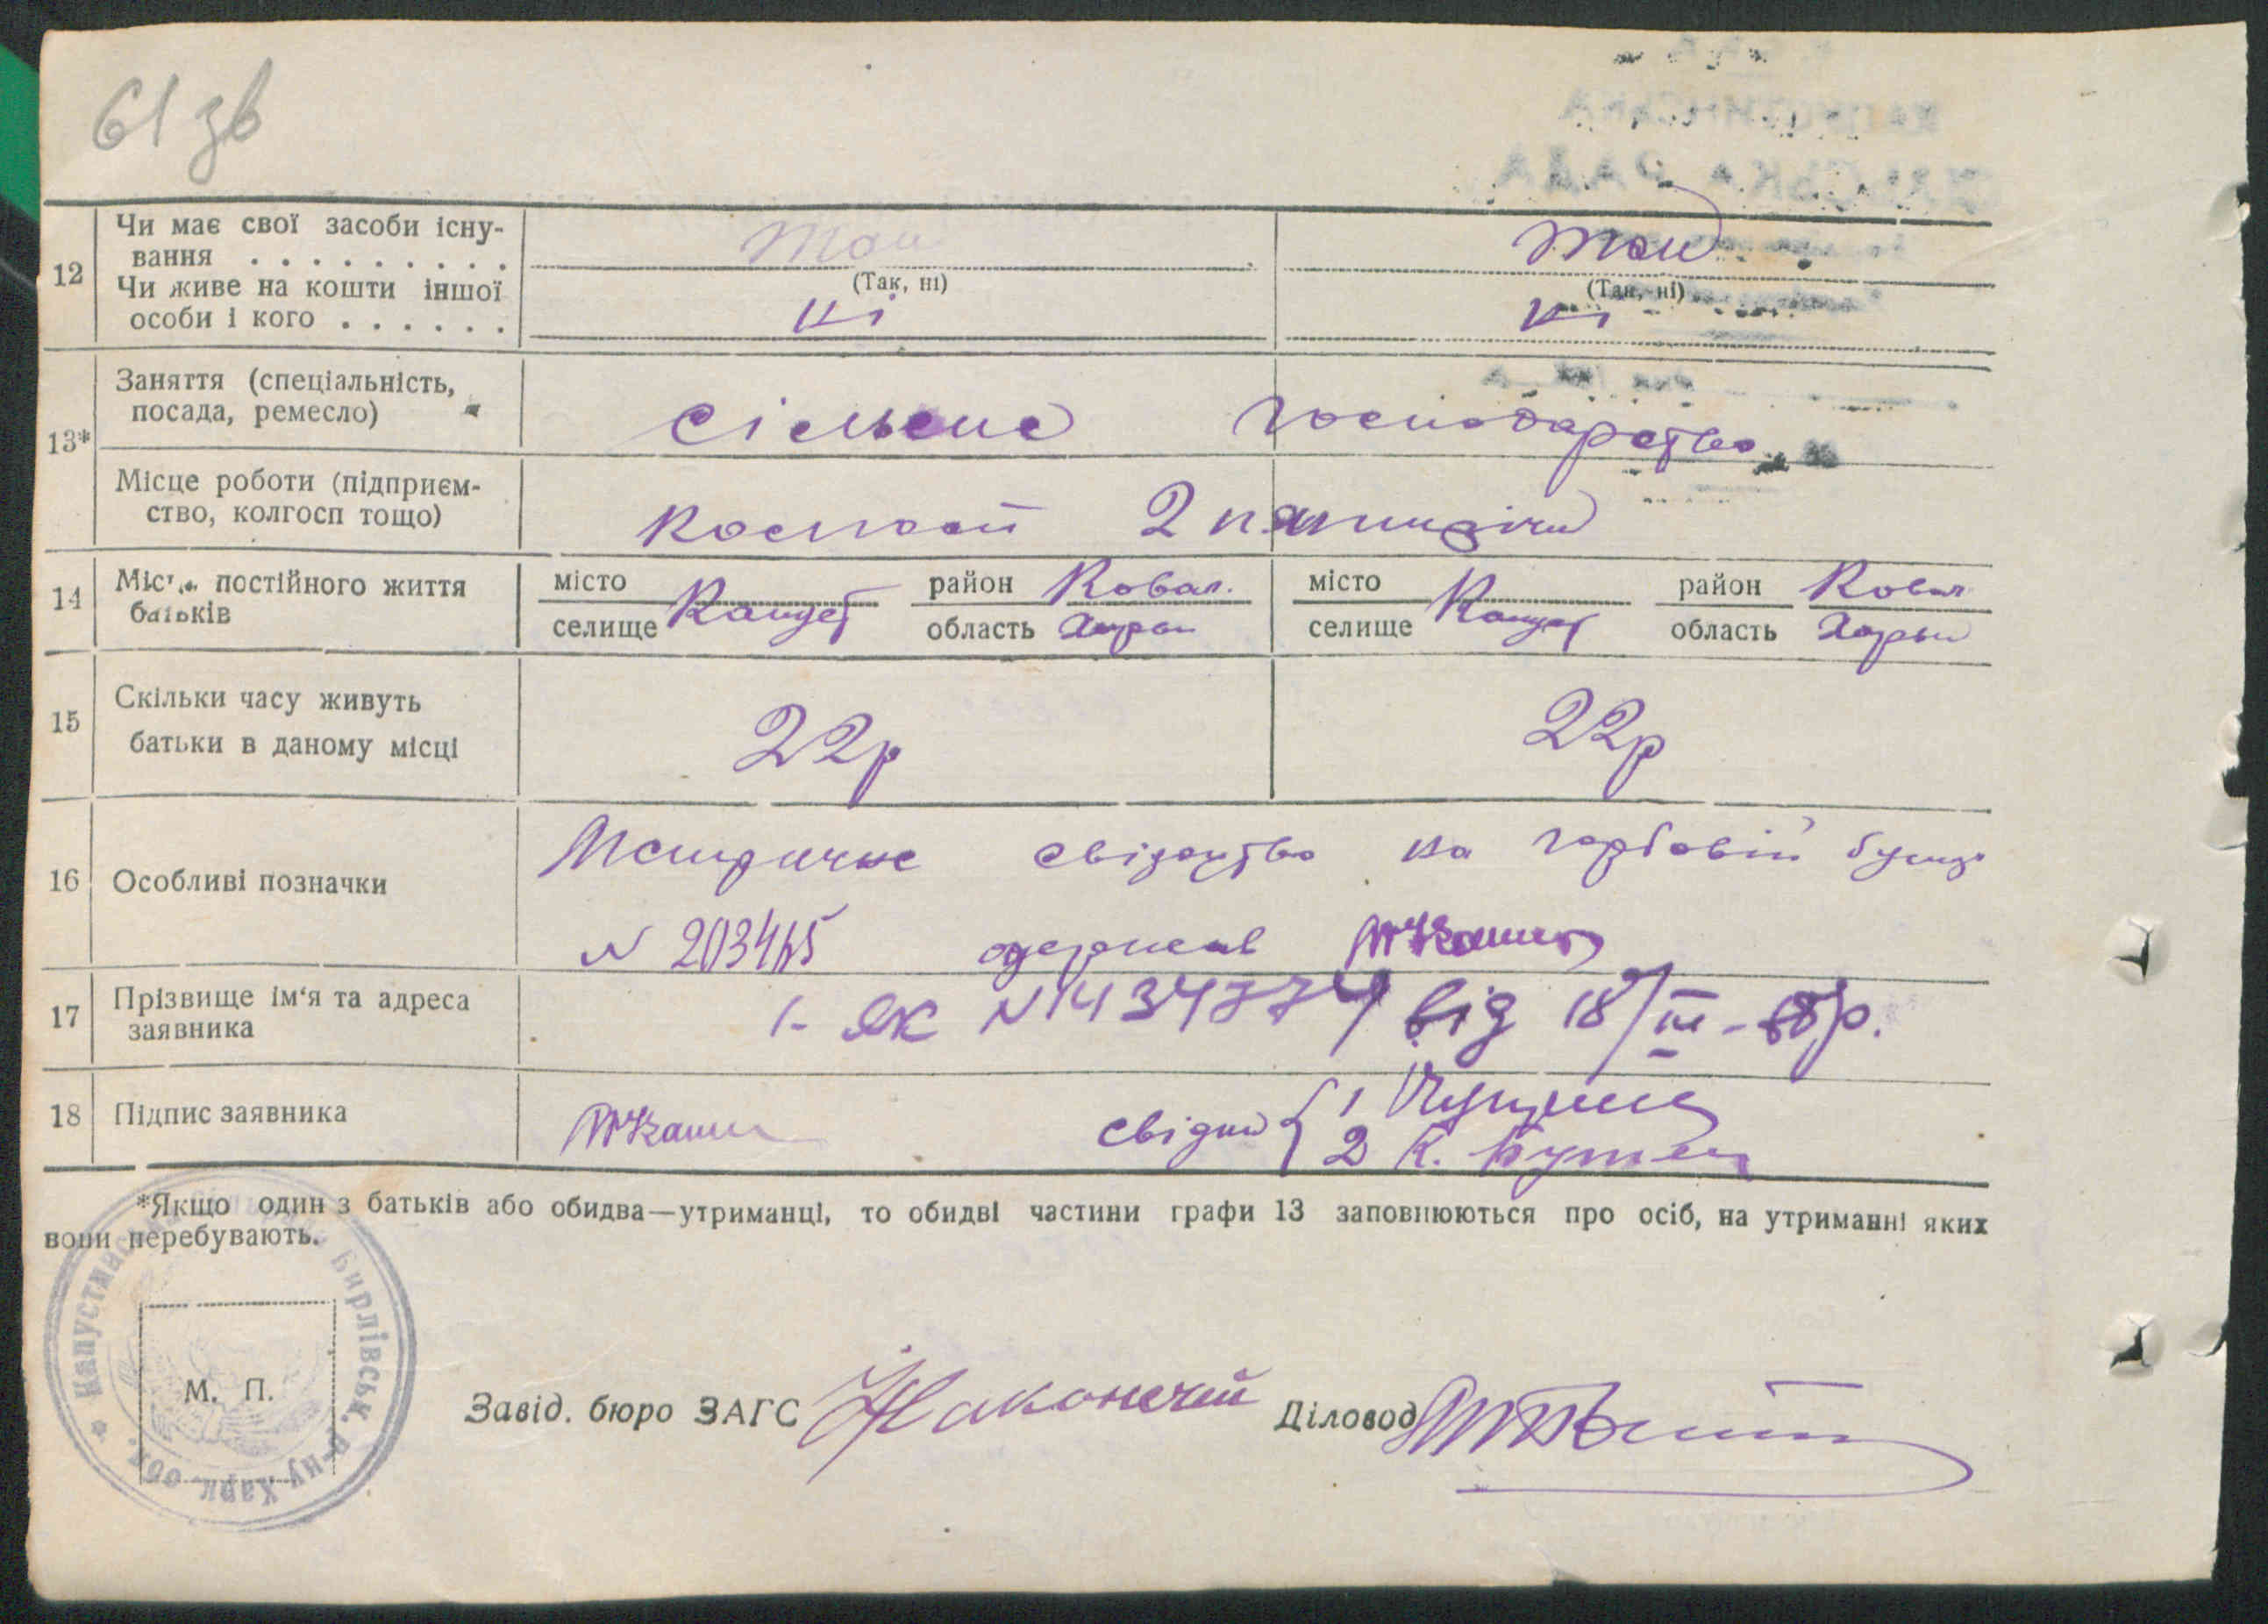 61 зв
12 Чи має свої засоби існу-
вання . . . . . . . . .
Чи живе на кошти іншої
особи і кого . . . . . .
так так
(Так, ні) (Так, ні)
ні ні
13* Заняття (спеціальність,
посада, ремесло)
сільське господарство
Місце роботи (підприєм-
ство, колгосп тощо)
колгосп 2 п'ятирічки
14 Місце постійного життя
батьків
місто район Ковал. місто район Ковал
селище Капуст область Харків селище Капуст область Харків
15 Скільки часу живуть
батьки в даному місці
22р 22р
16 Особливі позначки
Метричне свідоцтво на гербовій бумазі
N 203465 одержав
17 Прізвище ім'я та адреса
заявника
І-ЯК N 434774 від 18/III-68р.
18 Підпис заявника
свідки 1
2 К.
*Якщо один з батьків або обидва—утриманці, то обидві частини графи 13 заповнюються про осіб, на утриманні яких
вони перебувають.
М. П.
Завід. бюро ЗАГС Наконечний Діловод